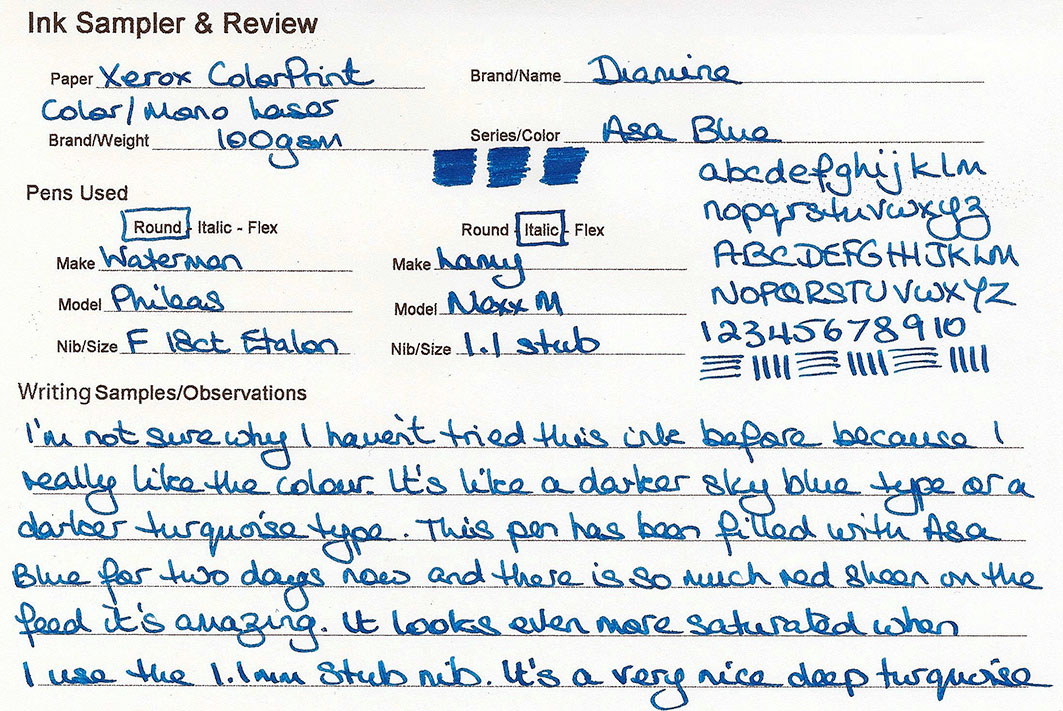 Ink Sampler & Review
Paper Xerox ColorPrint
Brand/Name Diamine
Color/Mono Laser
Brand/Weight 100gsm
Series/Color Asa Blue
abcdefghijklm
nopqrstuvwxyz
ABCDEFGHIJKLM
NOPQRSTUVWXYZ
12345678910
Pens Used
Round - Italic - Flex
Round - Italic - Flex
Make Waterman
Make Lamy
Model Phileas
Model Nexx M
Nib/Size F 18ct Etalon
Nib/Size 1.1 stub
Writing Samples/Observations
I'm not sure why I haven't tried this ink before because I
really like the colour. It's like a darker sky blue type or a
darker turquoise type. This pen has been filled with Asa
Blue for two days now and there is so much red sheen on the
feed it's amazing. It looks even more saturated when
I use the 1.1mm Stub nib. It's a very nice deep turquoise